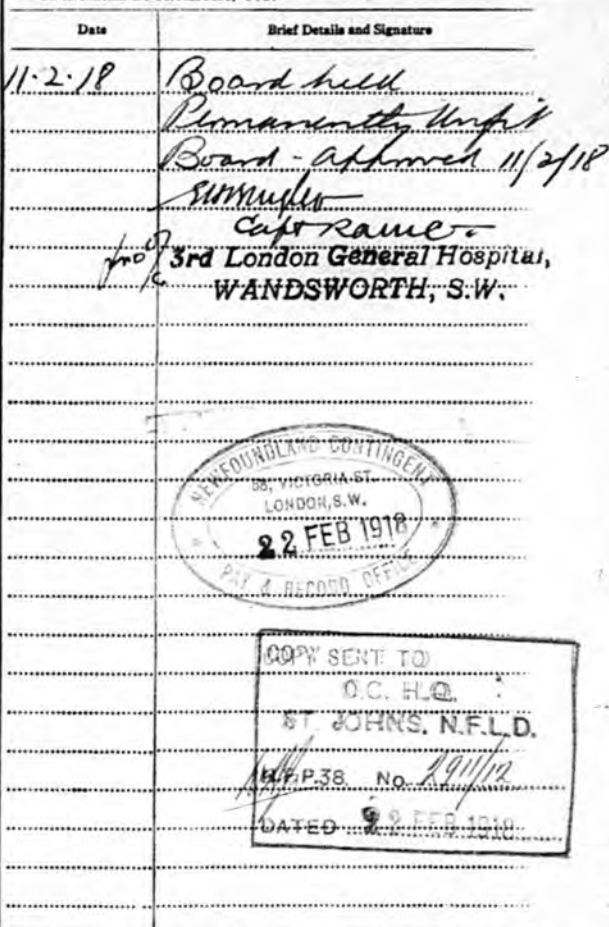 Date Brief Details and Signature
11.2.18 Board held
Permanently Unfit
Board - approved 11/2/18
Capt RAMC
3rd London General Hospital,
WANDSWORTH, S.W.
NEWFOUNDLAND CONTINGENT
58, VICTORIA ST.
LONDON, S.W.
22 FEB 1918
PAY & RECORD OFFICE
COPY SENT TO
O.C. H.Q.
ST. JOHNS. N.F.L.D.
N.F.P.38. No. 2911/12
DATED 22 FEB 1918